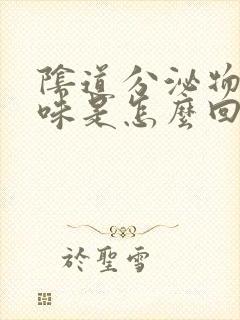 陰道分泌物
味是怎麼回
於聖雪